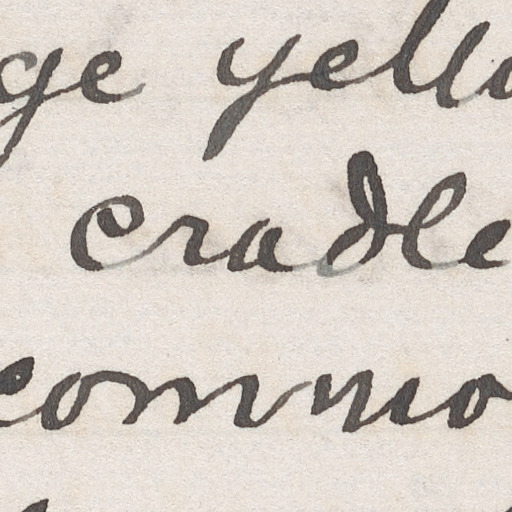 ge yello
cradle
commo